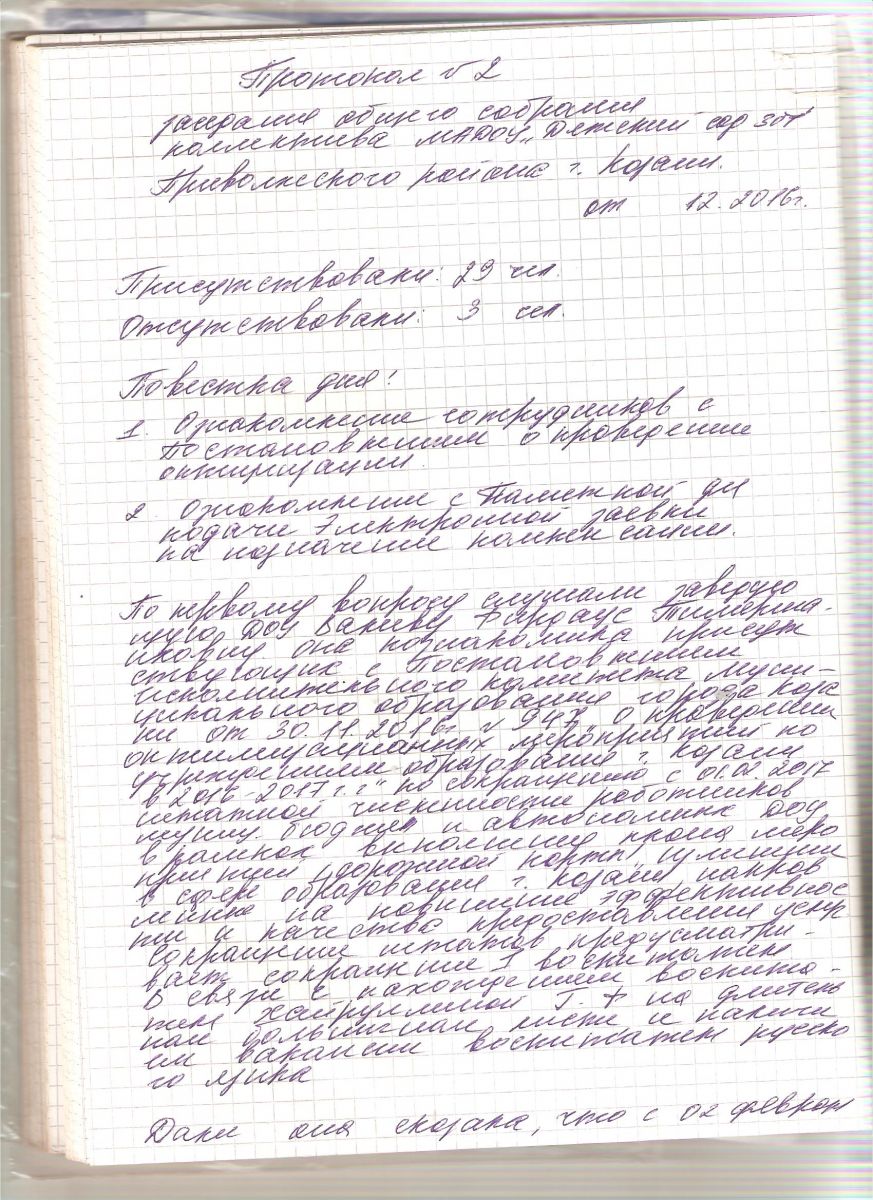 Протокол № 2
заседания общего собрания
коллектива МАДОУ „Детский сад
Приволжского района г. Казани.
от 12. 2016г.
Присутствовали: 29 чел.
Отсутствовали: 3 чел.
Повестка дня:
1. Ознакомление сотрудников с
Постановлением о проведении
оптимизации.
2. Ознакомление с Памяткой для
подачи электронной заявки
на назначение компенсации.
По первому вопросу слушали заведую
щую ДОУ Фирдаус
она познакомила присут
ствующих с Постановлением
исполнительного комитета муни-
ципального образования города Каза
ни от 30.11.2016г. № 947 „О проведении
оптимизационных мероприятий по
учреждениям образования г. Казани
в 2016-2017г.г." по сокращению с 01.02.2017
штатной численности работников
муниц. бюджет и автономных ДОУ
в рамках выполнения меро
приятий „дорожной карты"
в сфере образования г. Казани направ
ления на повышение эффективнос
ти и качества предоставления услуг
Сокращение штатов предусматри-
вает сокращение 1 воспитателя
В связи с нахождением воспита-
теля Хайруллиной Г. Ф на длитель
ном больничном листе и наличи
ем вакансии воспитателя русско
го языка
Далее она сказала, что с 02 февраля